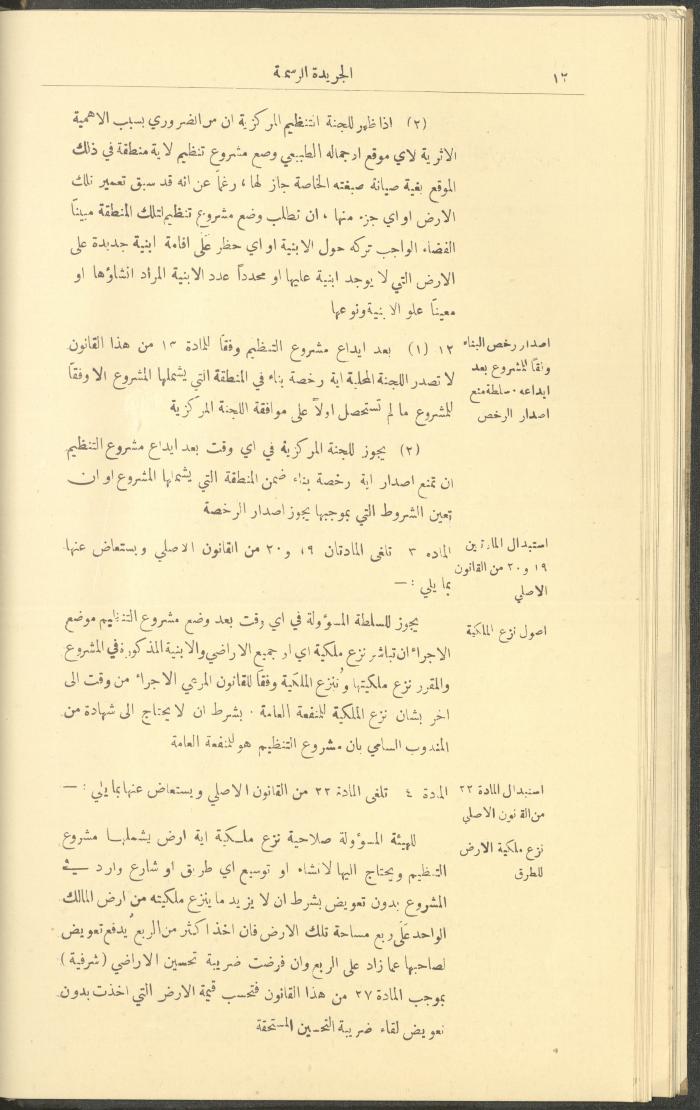 ١٢
الجريدة الرسمية
(٢) اذا ظهر للجنة التنظيم المركزية ان من الضروري بسبب الاهمية
الاثرية لاي موقع او جماله الطبيعي وضع مشروع تنظيم لاية منطقة في ذلك
الموقع بغية صيانة صبغته الخاصة جاز لها، رغماً عن انه قد سبق تعمير تلك
الارض او اي جزء منها، ان تطلب وضع مشروع تنظيم لتلك المنطقة مبيناً
الفضاء الواجب تركه حول الابنية او اي حظر على اقامة ابنية جديدة على
الارض التي لا يوجد ابنية عليها او محدداً عدد الابنية المراد انشاؤها او
معيناً علو الابنية ونوعها
اصدار رخص البناء
وفقاً للمشروع بعد
ايداعه. سلطة منع
اصدار الرخص
١٢ (١) بعد ايداع مشروع التنظيم وفقاً للمادة ١٣ من هذا القانون
لا تصدر اللجنة المحلية اية رخصة بناء في المنطقة التي يشملها المشروع الا وفقاً
للمشروع ما لم تستحصل اولاً على موافقة اللجنة المركزية
(٢) يجوز للجنة المركزية في اي وقت بعد ايداع مشروع التنظيم
ان تمنع اصدار اية رخصة بناء ضمن المنطقة التي يشملها المشروع او ان
تعين الشروط التي بموجبها يجوز اصدار الرخصة
استبدال المادتين
١٩ و ٢٠ من القانون
الاصلي
المادة ٣ تلغى المادتان ١٩ و ٢٠ من القانون الاصلي ويستعاض عنها
بما يلي : —
اصول نزع الملكية
يجوز للسلطة المسؤولة في اي وقت بعد وضع مشروع التنظيم موضع
الاجراء ان تباشر نزع ملكية اي او جميع الاراضي والابنية المذكورة في المشروع
والمقرر نزع ملكيتها وتنزع الملكية وفقاً للقانون المرعي الاجراء من وقت الى
اخر بشان نزع الملكية للمنفعة العامة. بشرط ان لا يحتاج الى شهادة من
المندوب السامي بان مشروع التنظيم هو للمنفعة العامة
استبدال المادة ٢٢
من القانون الاصلي
المادة ٤ تلغى المادة ٢٢ من القانون الاصلي ويستعاض عنها بما يلي : —
نزع ملكية الارض
للطرق
للهيئة المسؤولة صلاحية نزع ملكية اية ارض يشملها مشروع
التنظيم ويحتاج اليها لانشاء او توسيع اي طريق او شارع وارد في
المشروع بدون تعويض بشرط ان لا يزيد ما ينزع ملكيته من ارض المالك
الواحد على ربع مساحة تلك الارض فان اخذ اكثر من الربع يدفع تعويض
لصاحبها عما زاد على الربع وان فرضت ضريبة تحسين الاراضي (شرفية)
بموجب المادة ٢٧ من هذا القانون فتحسب قيمة الارض التي اخذت بدون
تعويض لقاء ضريبة التحسين المستحقة